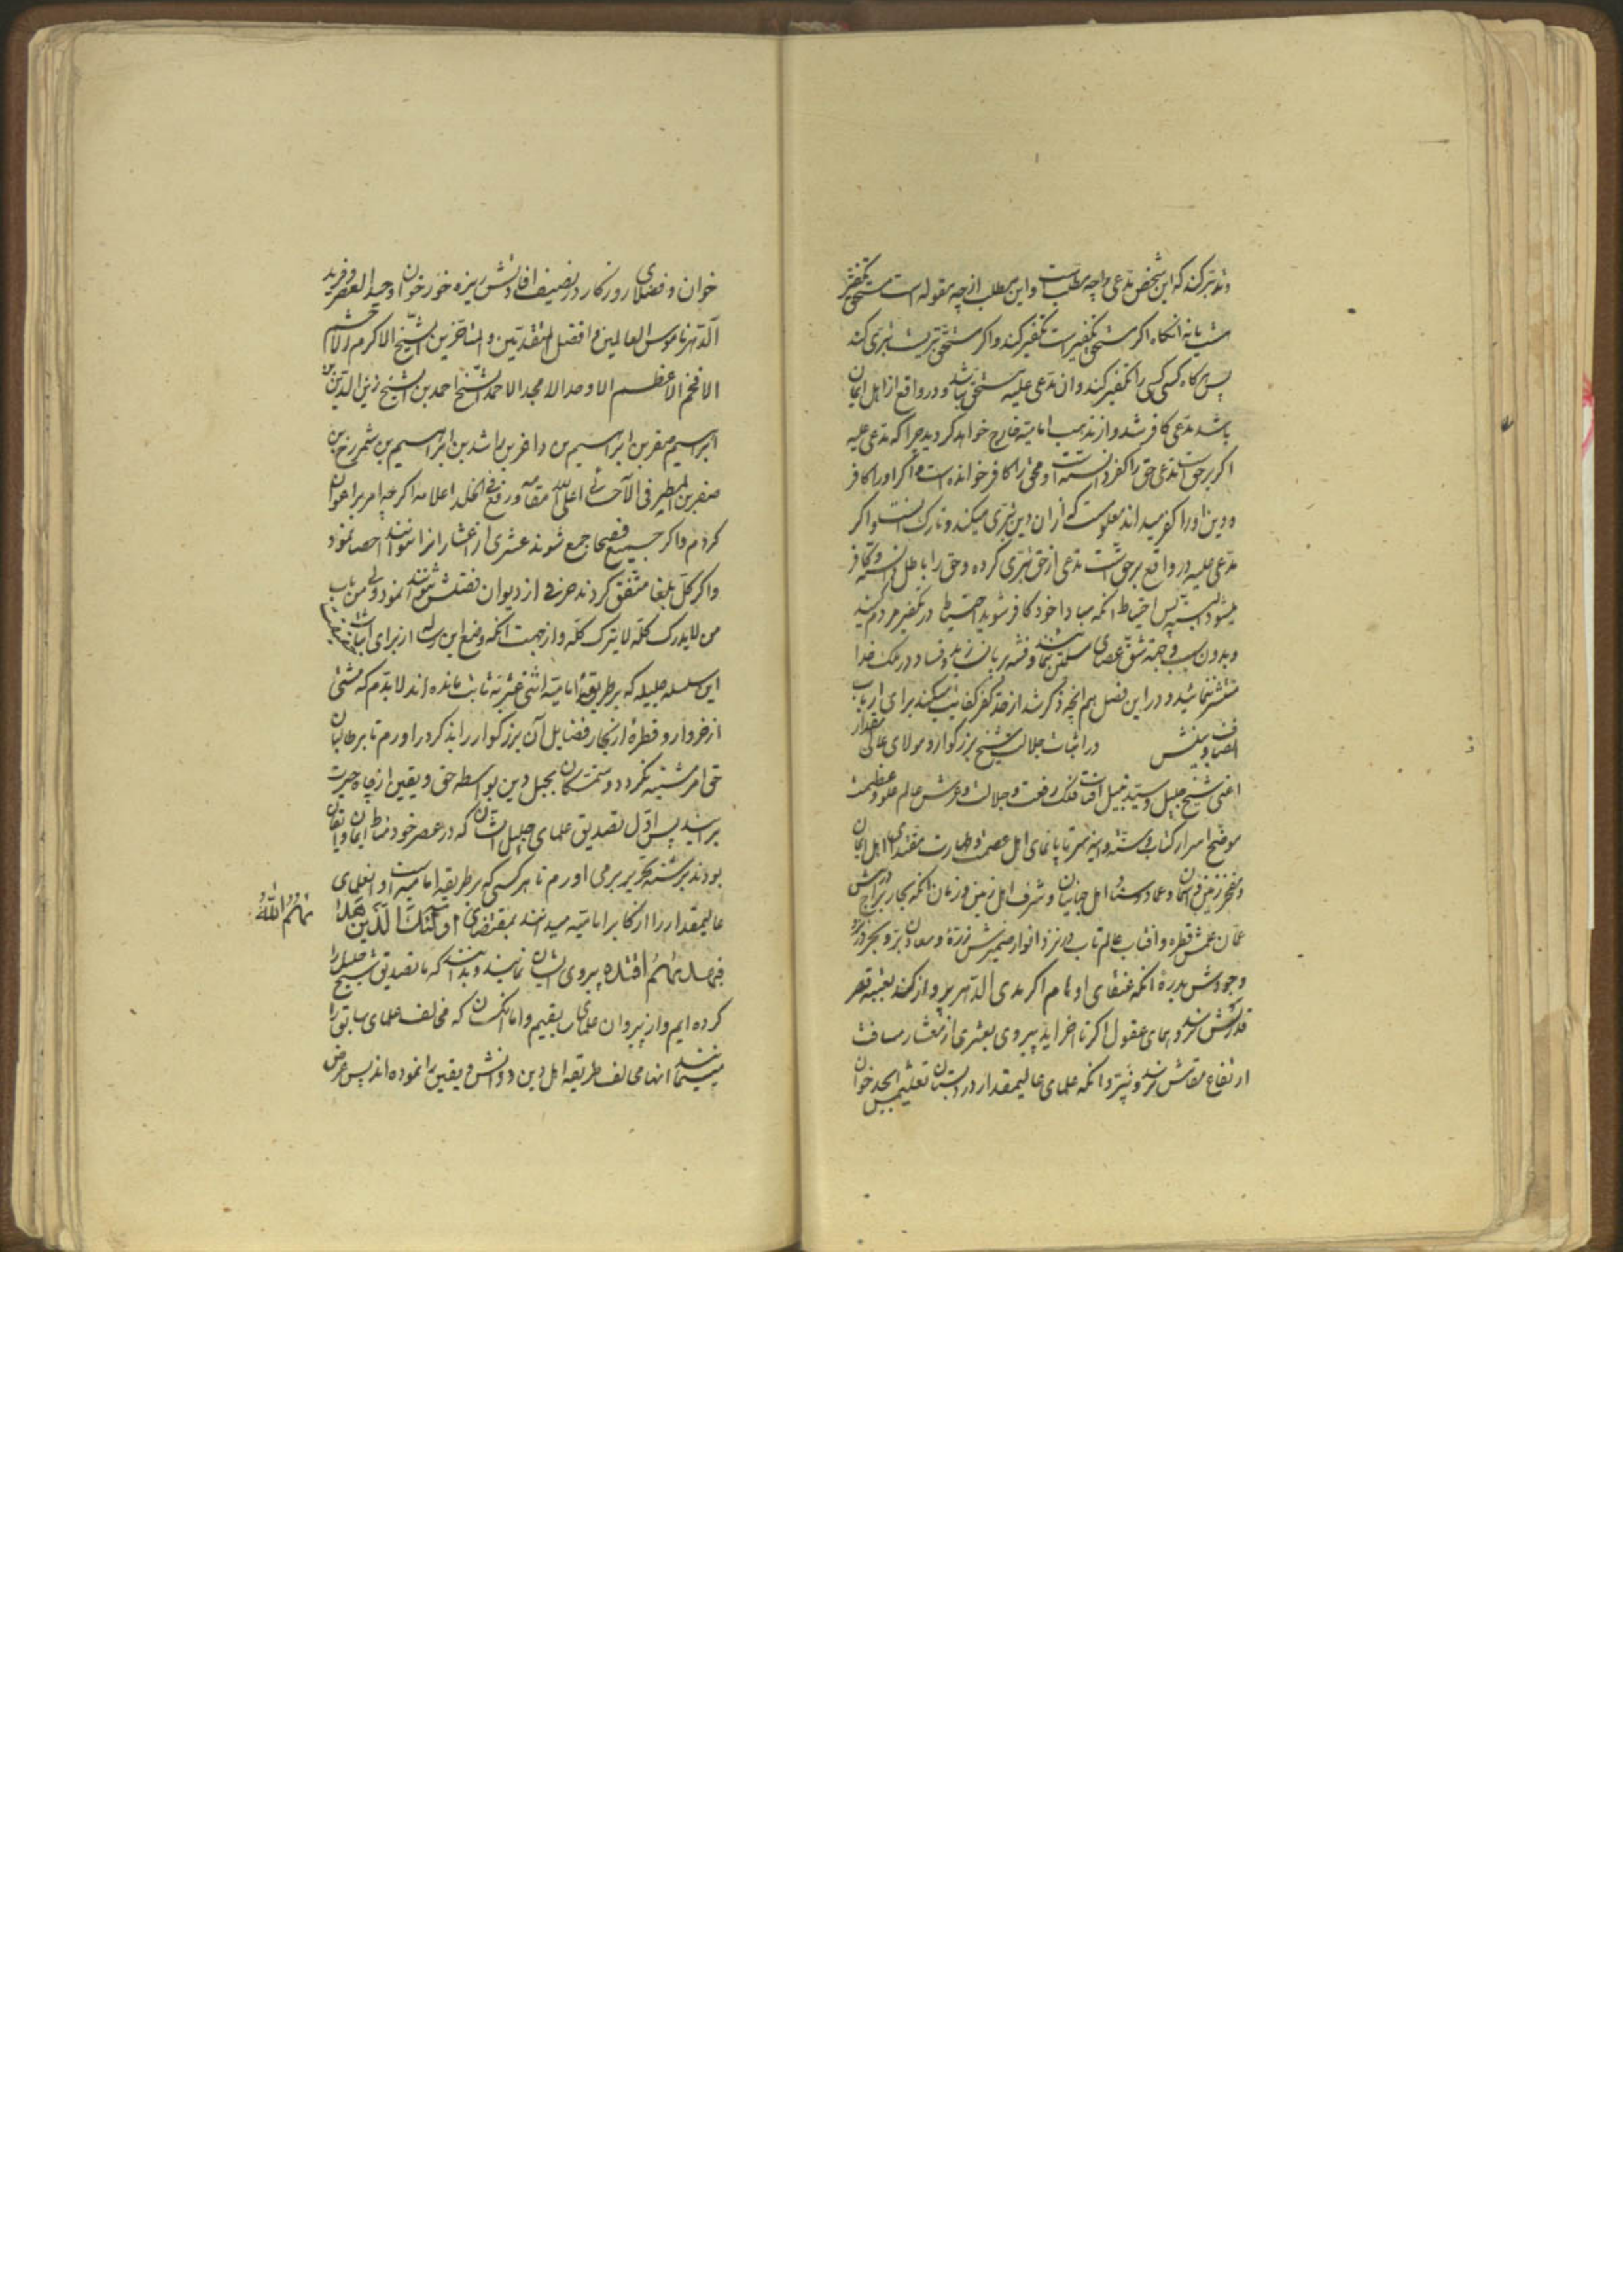 و تدبر کند که این شخص مدعی را چه مطلب است و این مطلب از چه مقوله است مستحق تکفیر
هست یا نه آنکاه اکر مستحق تکفیر است تکفیر کند و اکر مستحق تبری است تبری کند
پس هرکاه کسی کسی را تکفیر کند و ان مدعی علیه مستحق نباشد و در واقع از اهل ایمان
باشد مدعی کافر شد و از مذهب امامیه خارج خواهد کردید چرا که مدعی علیه
اکر بر حق است مدعی حق را کفر دانسته است و محق را کافر خوانده است و اکر او را کافر
و دین او را کفر میداند معلوم است که از ان دین تبری میکند و تارک است و اکر
مدعی علیه در واقع بر حق است مدعی از حق تبری کرده و حق را باطل دانسته و کافر
میشود البته پس احتیاط انکه مبادا خود کافر شوید احتیاط در تکفیر مردم کنید
و بدون سبب و جهة شق عصای مسلمین ننمائید و فتنه بر پا نسازید و فساد در ملک خدا
منتشر ننمائید و در این فصل هم انچه ذکر شد از حد کفر کفایت میکند برای ارباب
انصاف و بینش در اثبات جلالت شیخ بزرکوار و مولای عالی مقدار
اعنی شیخ جلیل و سید نبیل افتاب فلک رفعت و جلالت و عرش عالم علو و عظمت
موضح اسرار کتاب و سنت و ایینه سر تا پا نمای اهل عصمت و طهارت مقتدای اهل ایمان
و مفخر زمین و اسمان و عماد و سناد اهل جنان و شرف اهل زمین و زمان انکه بحار نزد امواج دانش
عمان عمش قطره و افتاب عالم تاب در نزد انوار ضمیرش ذرة و معادن بر و بحر در نزد
وجودش بدرة انکه عنقای اوهام اکر مدی الدهر پرواز کند بعتبه قصر
قدرتش نرسد و همای عقول اکر تا اخر ابد پیروی بعشری از معشار مسافت
ارتفاع مقامش نرسد و نپرد انکه علمای عالیمقدار در دبستان تعلیمش ابجد خوان
خوان و فضلای روزکار در تصنیف افادتش ریزه خور خوان اوحد العصر و فرید
الدهر ناموس العالمین و افضل المتقدمین و المتاخرین الشیخ الاکرم و الاحشم
الافخم الاعظم الاوحد الامجد الاحمد الشیخ احمد بن الشیخ زین الدین بن
ابراهیم بن صقر بن ابراهیم بن داغر بن راشد بن ابراهیم بن شمروخ بن
صقر بن المطیرفی الاحسائی اعلی الله مقامه و رفع فی الخلد اعلامه اکر چه
کردم و اکر جمیع فصحا جمع شوند عشری از اعشار انرا نتوانند احصا نمود
و اکر کل بلغا متفق کردند حرفی از دیوان فضلش نتوانند نمود ولی من باب
من لا یدرک کله لا یترک کله و از جهت انکه وضع این رساله از برای اثبات
این سلسله جلیله که بر طریقه امامیه اثنی عشریه ثابت مانده اند لابدم که مشتی
از خروار و قطره از بحار فضایل آن بزرکوار را بذکر در اورم تا بر طالبان
حق امر مشتبه نکردد و متمسکان بحبل دین بواسطه حق و یقین از چاه حیرت
بر آیند پس اول تصدیق علمای جلیل الشان که در عصر خود مناط ایمان و ایقان
بودند برشته تحریر بر می اورم تا هر کسی که بر طریقه امامیه است و انعلمای
عالیمقدار را از اکابر امامیه میدانند بمقتضای اولئك الذین هدا
هم الله
فبهداهم اقتده پیروی ایشان نمایند و بدانند که ما تصدیق شیخ جلیل را
کرده ایم و از پیروان علمای سابقیم و اما انکسان که مخالفت علمای سابق را
مینمایند انها مخالف طریقه اهل دین و دانش و یقین را نموده اند پس عرض